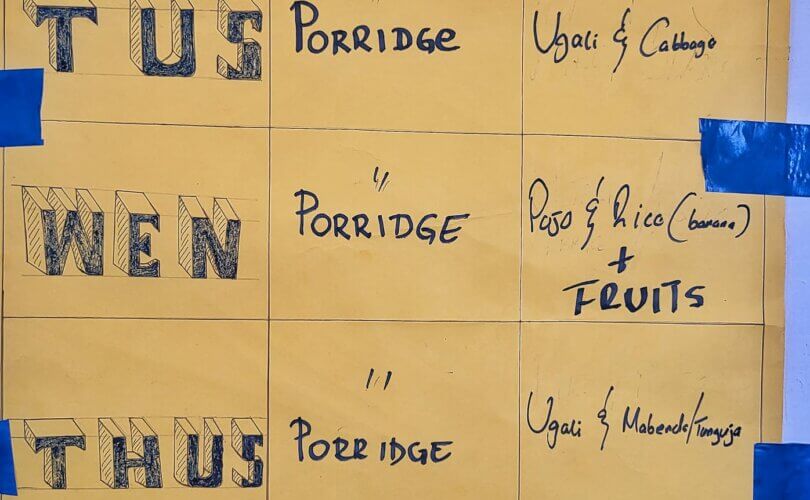 TUS PORRIDGE Ugali & Cabbage
WEN PORRIDGE Pojo & Rice (banana)
+
FRUITS
THUS PORRIDGE Ugali & Mabenda/Tunguja